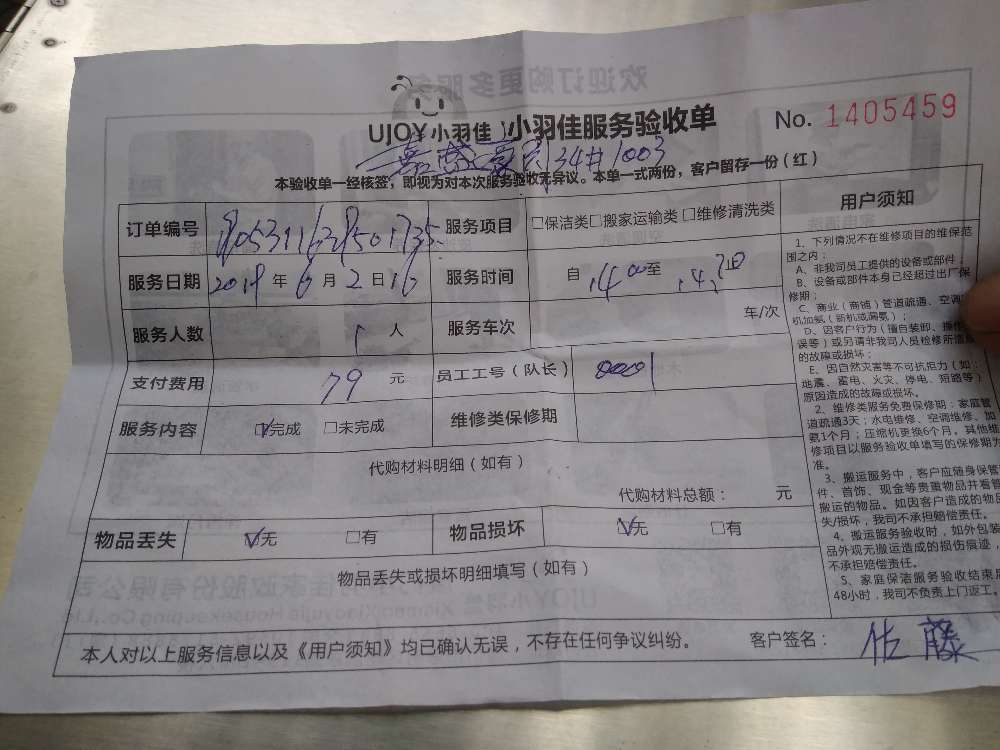 欢迎订购更多服务
UJOY小羽佳 小羽佳服务验收单
No. 1405459
34#1003
本验收单一经核签，即视为对本次服务验收无异议。本单一式两份，客户留存一份（红）
订单编号 服务项目 □保洁类□搬家运输类□维修清洗类
服务日期 2019年6月2日 服务时间 自14:00至 止
服务人数 1人 服务车次 车/次
支付费用 79元 员工工号（队长） 0001
服务内容 ☑完成 □未完成 维修类保修期
代购材料明细（如有）
代购材料总额： 元
物品丢失 ☑无 □有 物品损坏 ☑无 □有
物品丢失或损坏明细填写（如有）
本人对以上服务信息以及《用户须知》均已确认无误，不存在任何争议纠纷。 客户签名：佐藤
用户须知
1、下列情况不在维修项目的维保范
围之内：
A、非我司员工提供的设备或部件；
B、设备或部件本身已经超过出厂保
修期；
C、商业（商铺）管道疏通、空调
机加氨（新机或漏氨）；
D、因客户行为（擅自装卸、操作
误等）或另请非我司人员检修所造成
的故障或损坏；
E、因自然灾害等不可抗拒力（如：
地震、雷电、火灾、停电、短路等）
原因造成的故障或损坏。
2、维修类服务免费保修期：家庭管
道疏通3天；水电维修、空调维修、加
氨1个月；压缩机更换6个月。其他维
修项目以服务验收单填写的保修期为
准。
3、搬运服务中，客户应随身保管
件、首饰、现金等贵重物品并看管
搬运的物品。如因客户造成的物品
失/损坏，我司不承担赔偿责任。
4、搬运服务验收时，如外包装
品外观无搬运造成的损伤痕迹，
不承担赔偿责任。
5、家庭保洁服务验收结束后
48小时，我司不负责上门返工。